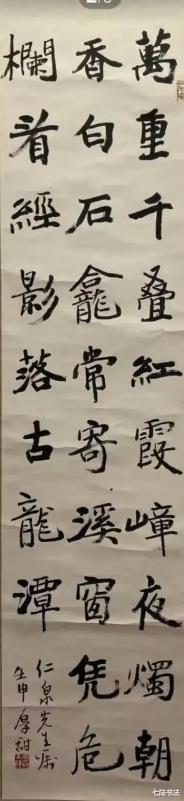 萬重千叠紅霞嶂夜燭朝
香白石龕常寄溪窗凭危
欄看經影落古龍潭
仁泉先生囑
壬申厚甜
七陆书法